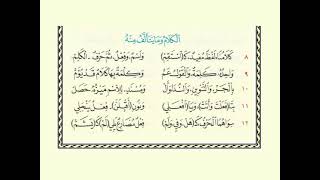 اَلْكَلَامُ وَمَا يَتَأَلَّفُ مِنْهُ
٨ كَلَامُنَا لَفْظٌ مُفِيدٌ كَاسْتَقِمْ وَاسْمٌ وَفِعْلٌ ثُمَّ حَرْفٌ الْكَلِمْ
٩ وَاحِدُهُ كَلِمَةٌ وَالْقَوْلُ عَمْ وَكِلْمَةٌ بِهَا كَلَامٌ قَدْ يُؤَمْ
١٠ بِالْجَرِّ وَالتَّنْوِينِ وَالنِّدَا وَأَلْ وَمُسْنَدٍ لِلِاسْمِ تَمْيِيزٌ حَصَلْ
١١ بِتَا فَعَلْتَ وَأَتَتْ وَيَا افْعَلِي وَنُونِ أَقْبِلَنَّ فِعْلٌ يَنْجَلِي
١٢ سِوَاهُمَا الْحَرْفُ كَهَلْ وَفِي وَلَمْ فِعْلٌ مُضَارِعٌ يَلِي لَمْ كَيَشَمْ